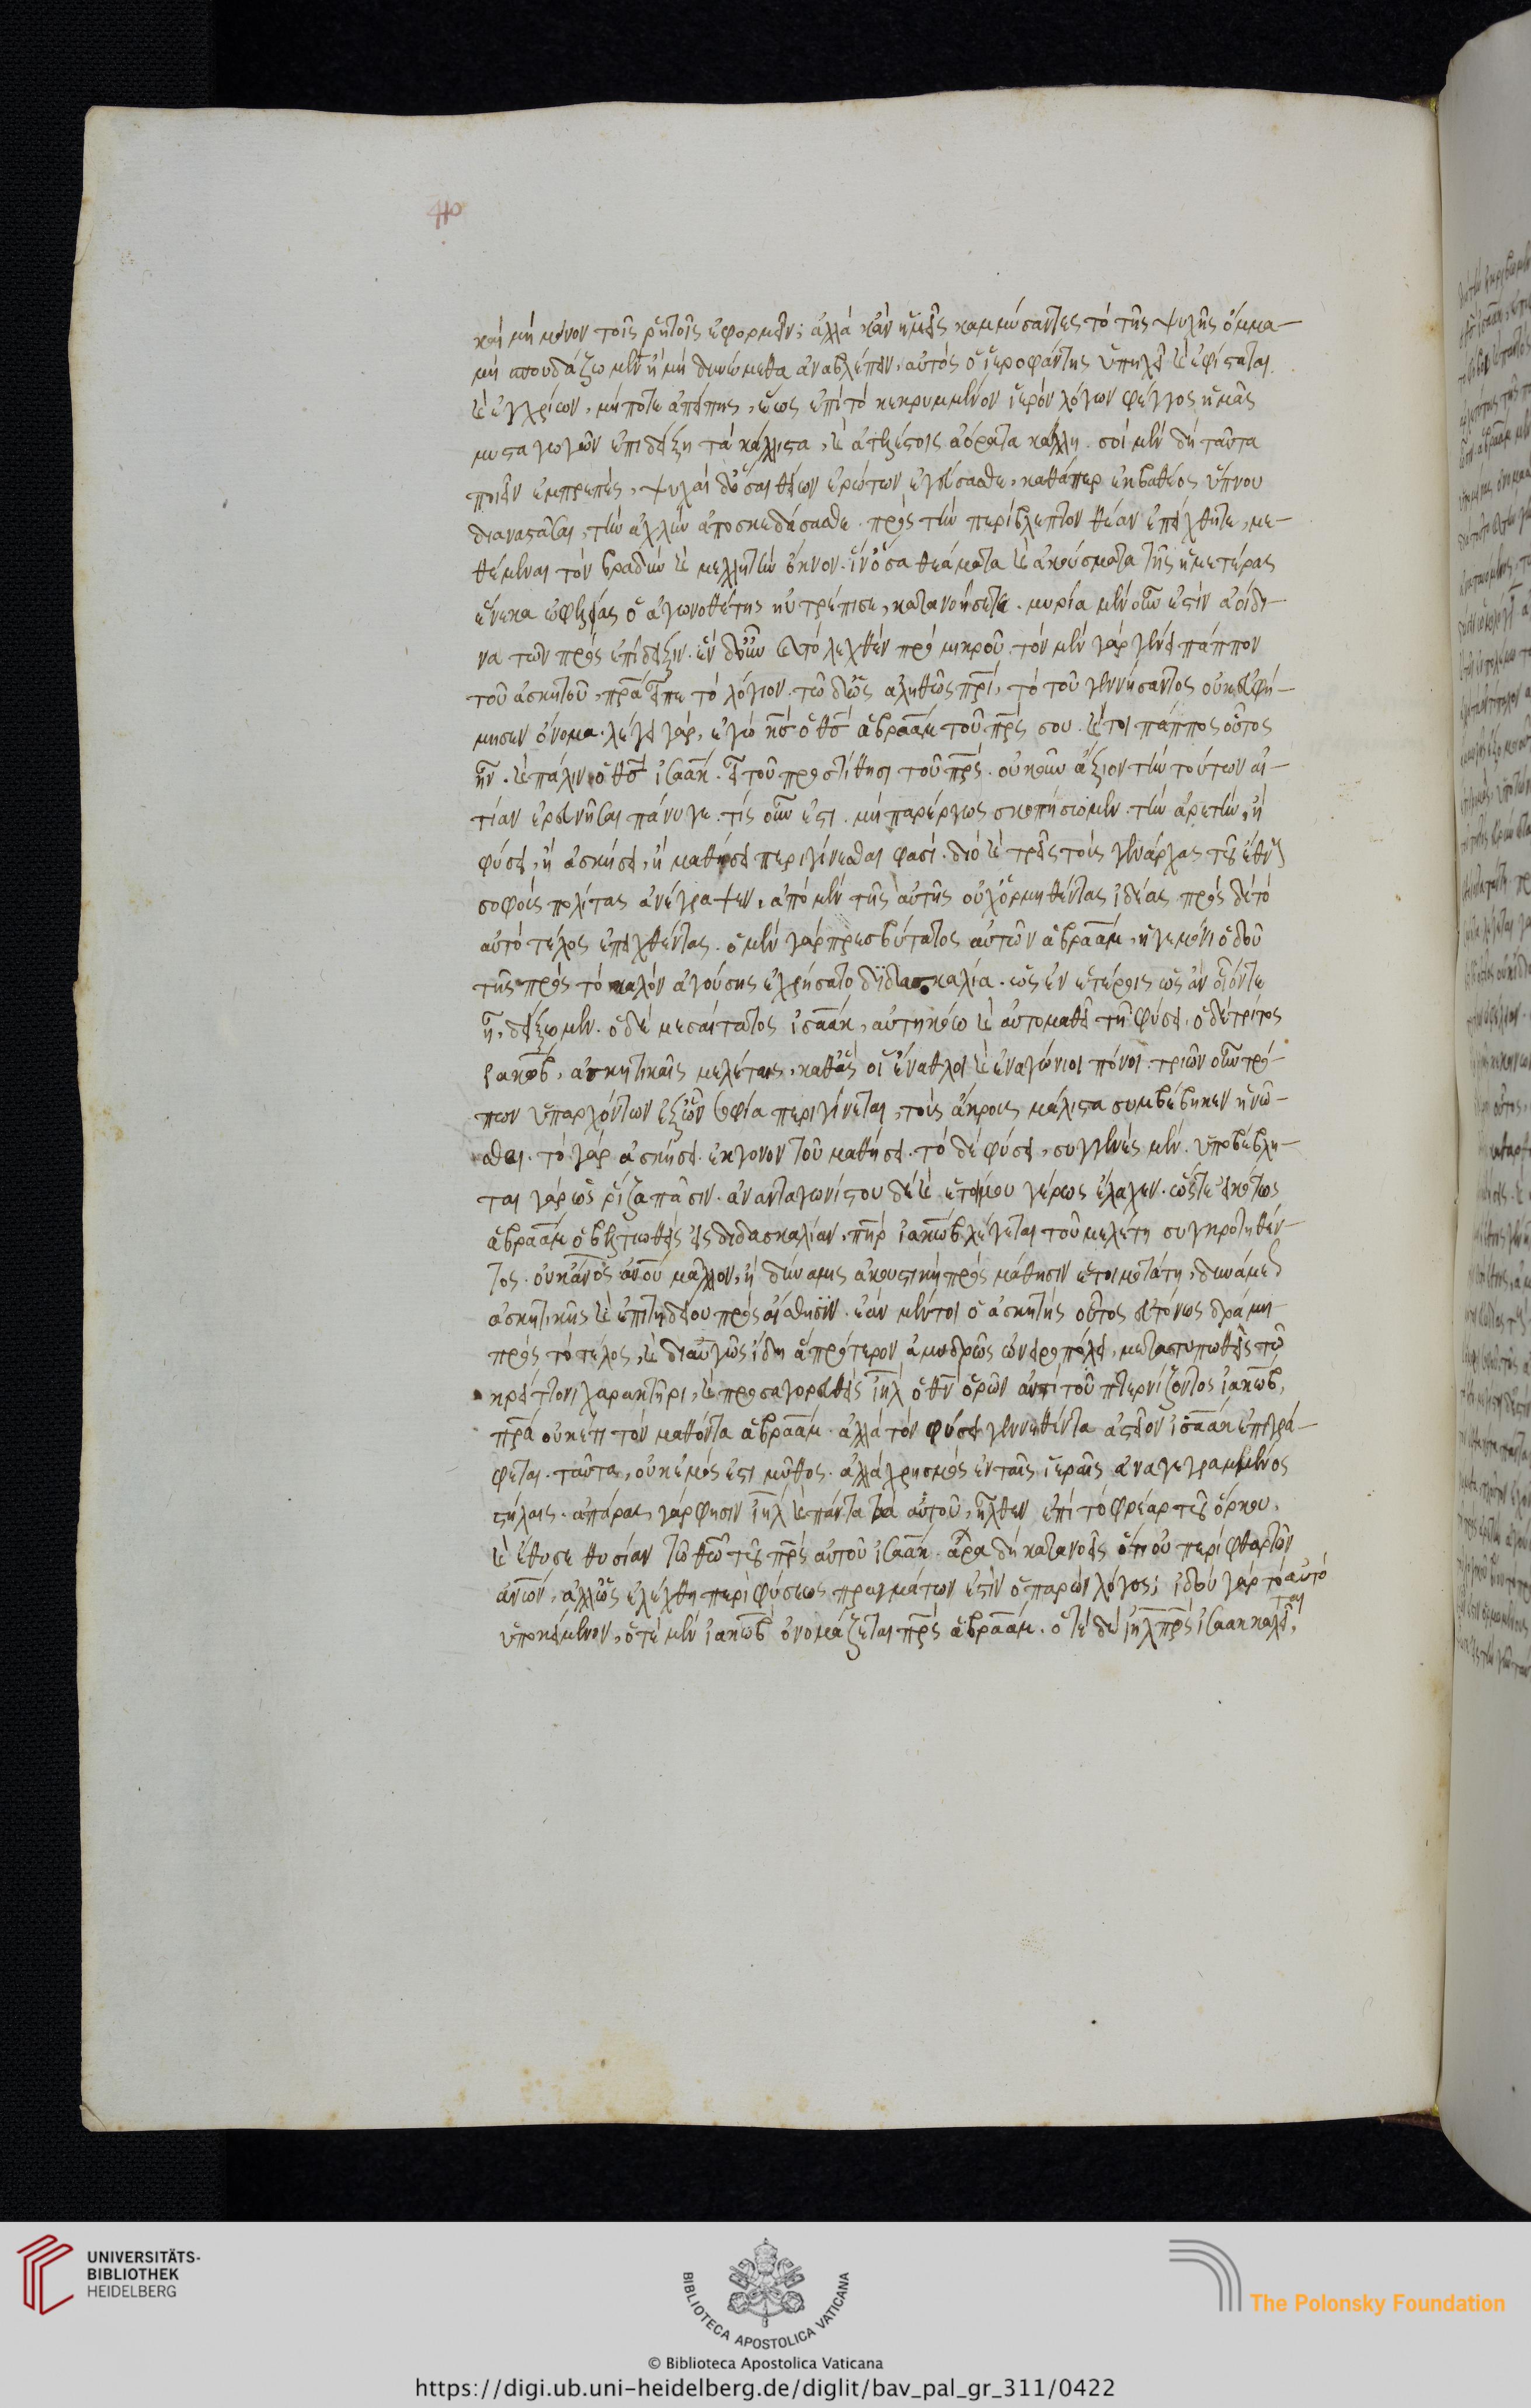 καὶ μὴ μόνον τοῖς ῥητοῖς ἐφορμεῖν; ἀλλὰ κἂν ἡμεῖς καμμύσαντες τὸ τῆς ψυχῆς ὄμμα
μὴ σπουδάζωμεν ἢ μὴ δυνώμεθα ἀναβλέπειν, αὐτὸς ὁ ἱεροφάντης ὑπήχει καὶ ἐφίσταται
καὶ ἐγχρίων, μήποτε ἀπείπης, ἕως ἐπὶ τὸ κεκρυμμένον ἱερὸν λόγων φέγγος ἡμᾶς
μυσταγωγῶν ἐπιδείξη τὰ κάλλιστα, καὶ ἀτελέστοις ἀόρατα κάλλη. σοὶ μὲν δὴ ταῦτα
ποιεῖν ἐμπρεπές, ψυχαὶ δ' ὅσαι θείων ἐρώτων ἐγεύσασθε, καθάπερ ἐκ βαθέος ὕπνου
διαναστᾶσαι, τὴν ἀχλὺν ἀποσκεδάσασθε. πρὸς τὴν περίβλεπτον θέαν ἐπείχθητε, με-
θέμεναι τὸν βραδὺν καὶ μελλητὴν ὄκνον. ἵν' ὅσα θεάματα καὶ ἀκούσματα τῆς ἡμετέρας
ἕνεκα ὠφελείας ὁ ἀγωνοθέτης ηὐτρέπισε, κατανοήσητε. μυρία μὲν οὖν ἐστὶν ἀοίδι-
μα τῶν πρὸς ἐπίδειξιν. ἓν δ' οὖν καὶ τὸ λεχθὲν πρὸ μικροῦ. τὸν μὲν γὰρ γένει πάππον
τοῦ ἀσκητοῦ, πρ̅α εἶπε τὸ λόγιον. τῶ δ' ὡς ἀληθῶς πρ̅ι, τὸ τοῦ γεννήσαντος οὐκ εὐφή-
μησεν ὄνομα. λέγει γάρ, ἐγὼ κς̅ ὁ θς̅ ἀβραὰμ τοῦ πρ̅ς σου. καί τοι πάππος οὗτος
ἦν. καὶ πάλιν ὁ θς̅ ἰσαάκ. εἶτ' οὐ προστίθησι τοῦ πρ̅ς. οὐκοῦν ἄξιον τὴν τούτων αἰ-
τίαν ἐρευνῆσαι πάνυ γε. τίς οὖν ἐστι. μὴ παρέργως σκοπήσωμεν. τὴν ἀρετὴν, ἢ
φύσει, ἢ ἀσκήσει, ἢ μαθήσει περιγίνεσθαι φασί. διὸ καὶ τρεῖς τοὺς γενάρχας τοῦ ἔθν
σοφοὺς πολίτας ἀνέγραψεν, ἀπὸ μὲν τῆς αὐτῆς οὐχ ὁρμηθέντας ἰδέας πρὸς δὲ τὸ
αὐτὸ τέλος ἐπειχθέντας. ὁ μὲν γὰρ πρεσβύτατος αὐτῶν ἀβραὰμ, ἡγεμόνι ὁδοῦ
τῆς πρὸς τὸ καλὸν ἀγούσης ἐχρήσατο διδασκαλία. ὡς ἐν ἑτέροις ὡς ἂν οἷόντε
ἦ, δείξομεν. ὁ δὲ μεσαίτατος ἰσαὰκ, αὐτηκόω καὶ αὐτομαθεῖ τῆ φύσει. ὁ δὲ τρίτος
ἰακὼβ, ἀσκητικαῖς μελέταις, καθ' ἃς οἱ ἔναθλοι καὶ ἐναγώνιοι πόνοι. τριῶν οὖν τρό-
πων ὑπαρχόντων ἐξ ὧν σοφία περιγίνεται, τοὺς ἄκρους μάλιστα συμβέβηκεν ἡνῶ-
σθαι. τὸ γὰρ ἀσκήσει. ἔκγονον τοῦ μαθήσει. τὸ δὲ φύσει, συγγενὲς μέν. ὑποβέβλη-
ται γὰρ ὡς ῥίζα πᾶσιν. ἀνανταγωνίστου δὲ καὶ ἑτοίμου γέρως ἔλαχεν. ὥστε εἰκότως
ἀβραὰμ ὁ βελτιωθεὶς εἰς διδασκαλίαν, πη̅ρ ἰακὼβ λέγεται τοῦ μελέτη συγκροτηθέν-
τος. οὐκ ἄνο̅ς ἀνο̅υ μᾶλλον, ἢ δύναμις ἀκουστικὴ πρὸς μάθησιν ἑτοιμοτάτη, δυνάμε
ἀσκητικῆς καὶ ἐπιτηδείου πρὸς ἄθλησιν. ἐὰν μέντοι ὁ ἀσκητὴς οὗτος εὐτόνως δράμη
πρὸς τὸ τέλος, καὶ διαυγῶς ἴδη ἃ πρότερον ἀμυδρῶς ὠνειροπόλει, μετατυπωθεὶς τῶ
κρείττονι χαρακτῆρι, καὶ προσαγορευθεὶς ἰη̅λ ὁ θν̅ ὁρῶν ἀντὶ τοῦ πτερνίζοντος ἰακὼβ,
πρ̅α οὐκέτι τὸν μαθόντα ἀβραάμ. ἀλλὰ τὸν φύσει γεννηθέντα ἀστεῖον ἰσαὰκ ἐπιγρά-
φεται. ταῦτα, οὐκ ἐμός ἐστι μῦθος. ἀλλὰ χρησμὸς ἐν ταῖς ἱεραῖς ἀναγεγραμμένος
στήλαις. ἀπάρας, γάρ φησιν ἰη̅λ καὶ πάντα τὰ αὐτοῦ, ἦλθεν ἐπὶ τὸ φρέαρ τοῦ ὅρκου,
καὶ ἔθυσε θυσίαν τῶ θω̅ τοῦ πρ̅ς αὐτοῦ ἰσαάκ. ἆρα δὴ κατανοεῖς ὅτι οὐ περὶ φθαρτῶν
ἀνω̅ν, ἀλλ' ὡς ἐλέχθη περὶ φύσεως πραγμάτων ἐστὶν ὁ παρὼν λόγος; ἰδοὺ γὰρ τὸ αὐτὸ
ὑποκείμενον, ὁτὲ μὲν ἰακὼβ ὀνομάζεται πρ̅ς ἀβραάμ. ὁτὲ δὲ ἰη̅λ πρ̅ς ἰσαὰκ καλεῖται,
UNIVERSITÄTS-
BIBLIOTHEK
HEIDELBERG
BIBLIOTECA APOSTOLICA VATICANA
The Polonsky Foundation
© Biblioteca Apostolica Vaticana
https://digi.ub.uni-heidelberg.de/diglit/bav_pal_gr_311/0422